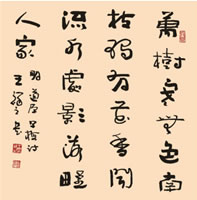 萬樹寒無色南
枝獨有花香聞
流水處影落野
人家
明道源早梅詩
王